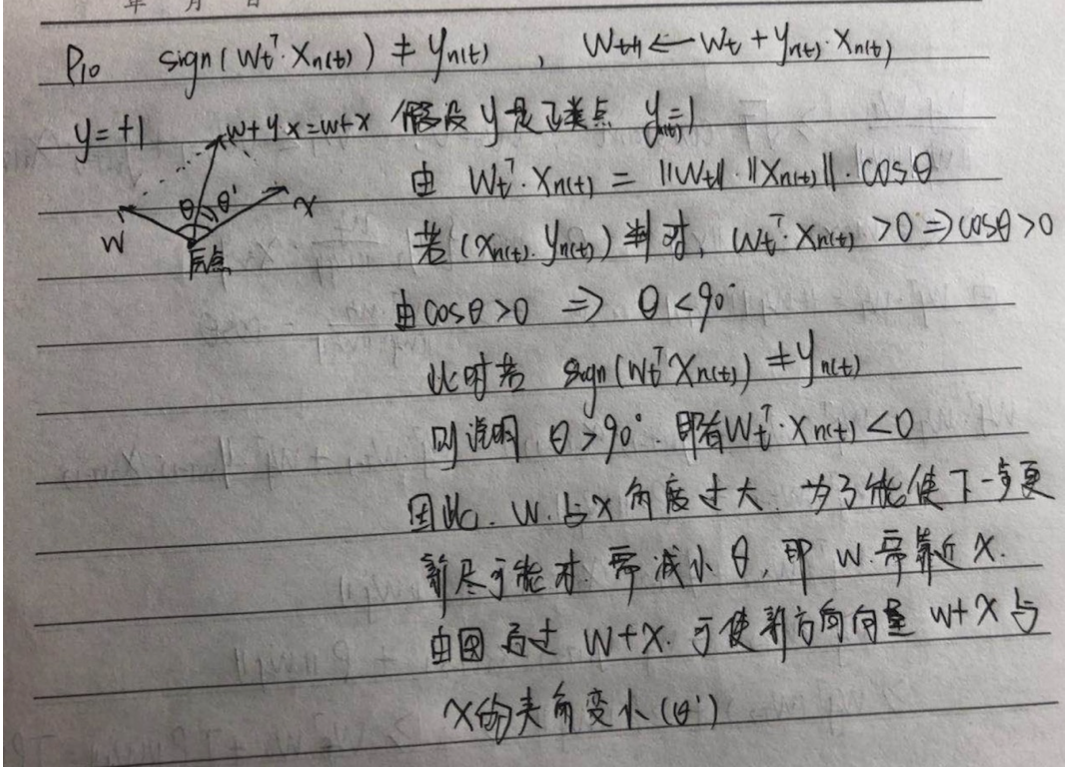 年 月 日
P10 sign(Wt^T·Xn(t)) ≠ yn(t) , Wt+1 ← Wt + yn(t)·Xn(t)
y=+1 W+yx=W+x 假设y是正类点 yn(t)=1
θ θ' x W 原点
由 Wt^T·Xn(t) = ||Wt||·||Xn(t)||·cosθ
若(Xn(t), yn(t))判对, Wt^T·Xn(t) >0 ⇒ cosθ>0
由cosθ>0 ⇒ θ<90°
此时若 sign(Wt^T Xn(t)) ≠ yn(t)
则说明 θ>90°. 即有Wt^T·Xn(t)<0
因此. W.与X角度过大. 为了能使下一步更
新尽可能对. 需减小θ, 即W.需靠近X.
由图 通过 W+X. 可使新方向向量 W+X与
X的夹角变小(θ')